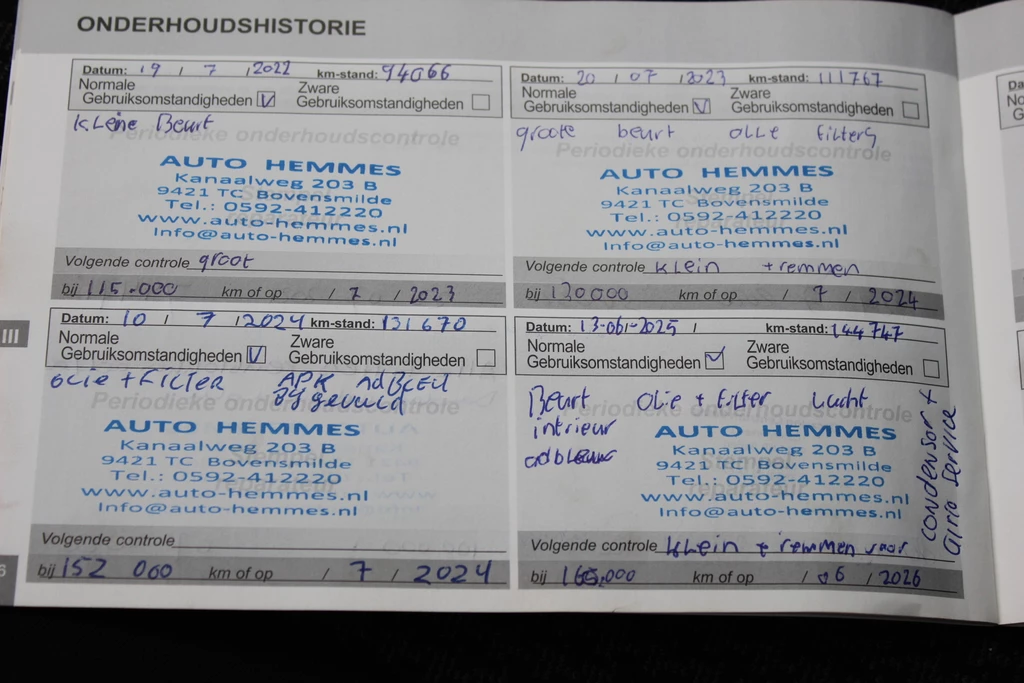 ONDERHOUDSHISTORIE
Datum: 19 / 7 / 2022 km-stand: 94066
Normale Gebruiksomstandigheden
Zware Gebruiksomstandigheden
Kleine Beurt
Periodieke onderhoudscontrole
AUTO HEMMES
Kanaalweg 203 B
9421 TC Bovensmilde
Tel.: 0592-412220
www.auto-hemmes.nl
Info@auto-hemmes.nl
Volgende controle groot
bij 115.000 km of op / 7 / 2023
Datum: 20 / 07 / 2023 km-stand: 111767
Normale Gebruiksomstandigheden
Zware Gebruiksomstandigheden
groote beurt olle filters
Periodieke onderhoudscontrole
AUTO HEMMES
Kanaalweg 203 B
9421 TC Bovensmilde
Tel.: 0592-412220
www.auto-hemmes.nl
Info@auto-hemmes.nl
Volgende controle klein + remmen
bij 130000 km of op / 7 / 2024
III
Datum: 10 / 7 / 2024 km-stand: 131670
Normale Gebruiksomstandigheden
Zware Gebruiksomstandigheden
olie + Filter APK AdBleu
Bijgevuld
Periodieke onderhoudscontrole
AUTO HEMMES
Kanaalweg 203 B
9421 TC Bovensmilde
Tel.: 0592-412220
www.auto-hemmes.nl
Info@auto-hemmes.nl
Volgende controle
bij 152 000 km of op / 7 / 2024
Datum: 13-06-2025 / km-stand: 144747
Normale Gebruiksomstandigheden
Zware Gebruiksomstandigheden
Beurt olie + filter lucht
intrieur
Periodieke onderhoudscontrole
Stempel
reparateur
AUTO HEMMES
Kanaalweg 203 B
9421 TC Bovensmilde
Tel.: 0592-412220
www.auto-hemmes.nl
Info@auto-hemmes.nl
condensor +
airco service
Volgende controle klein + remmen voor
bij 165.000 km of op / 06 / 2026